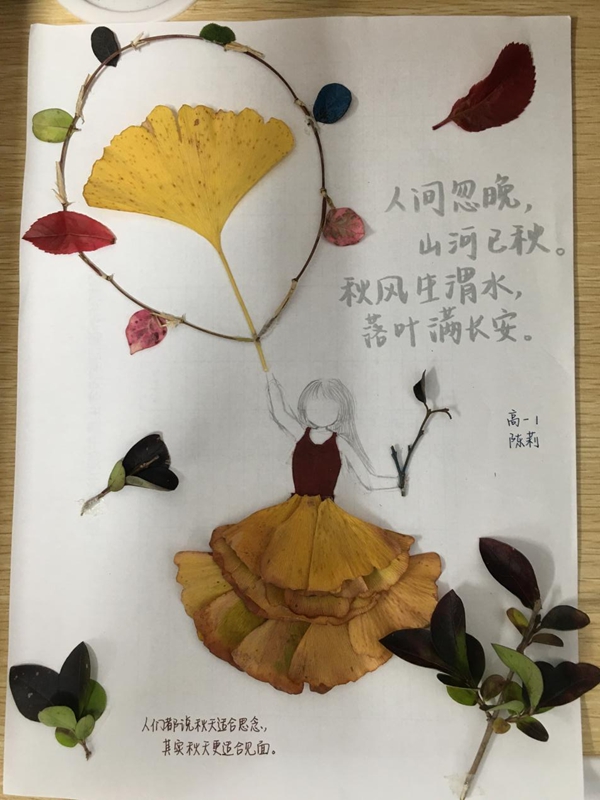 人间忽晚，
山河已秋。
秋风生渭水，
落叶满长安。
高一1
陈莉
人们都说秋天适合思念，
其实秋天更适合见面。